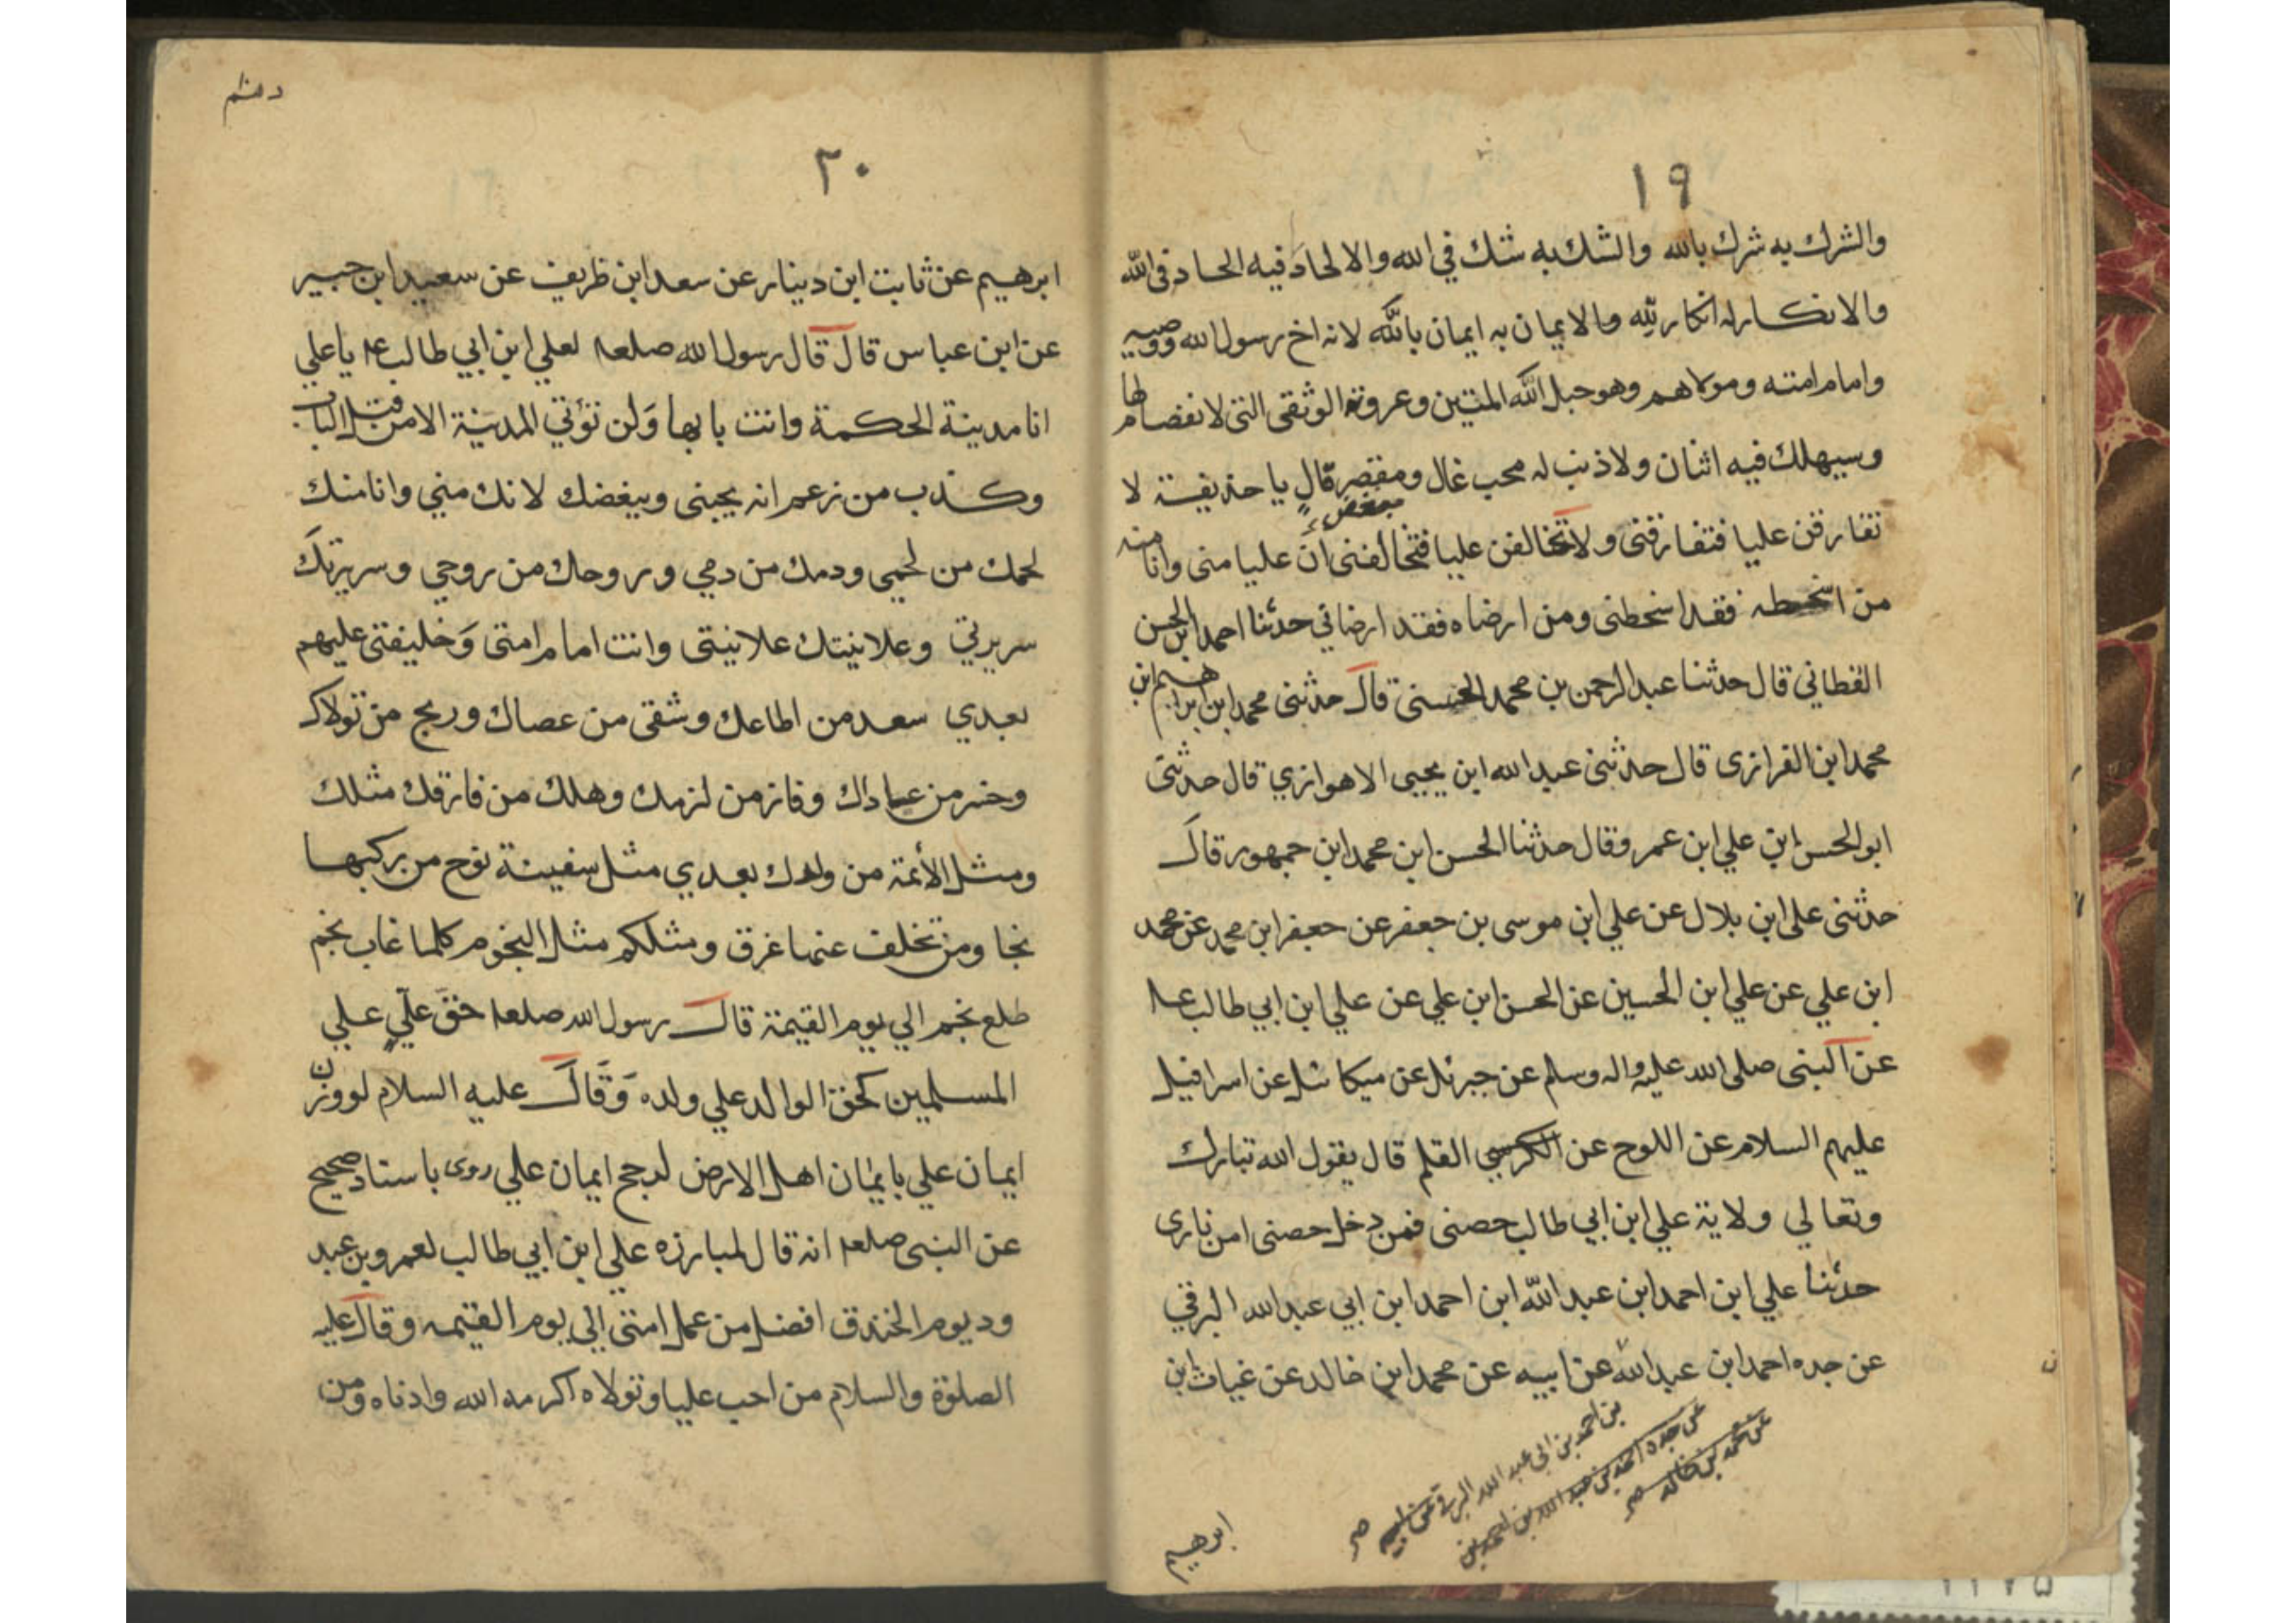 ١٩
والشرك به شرك بالله والشك به شك في الله والالحاد فيه الحاد في الله
والانكار له انكار لله والايمان به ايمان بالله لانه اخ رسول الله ووصيه
وامام امته ومولاهم وهو حبل الله المتين وعروة الوثقى التى لا نفصام لها
وسيهلك فيه اثنان ولا ذنب له محب غال ومقصر قال يا حذيفة لا
مبغض
تفارقن عليا فتفارقنى ولا تخالفن عليا فتخالفنى ان عليا منى وانا منه
من اسخطه فقد اسخطنى ومن ارضاه فقد ارضاني حدثنا احمد ابن الحسن
القطاني قال حدثنا عبد الرحمن بن محمد الحسنى قال حدثنى محمد ابن ابراهيم ابن
محمد ابن الفرازى قال حدثنى عبد الله ابن يحيى الاهوازي قال حدثنى
ابو الحسن ابن علي ابن عمر وقال حدثنا الحسن ابن محمد ابن جمهور قال
حدثنى على ابن بلال عن علي ابن موسى بن جعفر عن جعفر ابن محمد عن محمد
ابن علي عن علي ابن الحسين عن الحسن ابن علي عن علي ابن ابي طالب عم
عن النبى صلى الله عليه واله وسلم عن جبرئل عن ميكائل عن اسرافيل
عليهم السلام عن اللوح عن الكرسي القلم قال يقول الله تبارك
وتعالي ولاية علي ابن ابي طالب حصنى فمن دخل حصنى امن نارى
حدثنا علي ابن احمد ابن عبد الله ابن احمد ابن ابي عبد الله البرقي
عن جده احمد ابن عبد الله عن ابيه عن محمد ابن خالد عن غياث ابن
بن احمد بن ابي عبد الله البرقي عن ابيه
عن جده احمد بن عبد الله بن احمد بن
عن محمد بن خالد
ابرهيم
٢٠
ابرهيم عن ثابت ابن دينار عن سعد ابن ظريف عن سعيد ابن جبير
عن ابن عباس قال قال رسول الله صلعم لعلي ابن ابي طالب عم يا علي
انا مدينة الحكمة وانت بابها ولن تؤتي المدينة الا من قبل الباب
وكذب من زعم انه يحبنى ويبغضك لانك مني وانا منك
لحمك من لحمي ودمك من دمي وروحك من روحي وسريرتك
سريرتي وعلانيتك علانيتى وانت امام امتى وخليفتى عليهم
بعدي سعد من اطاعك وشقى من عصاك وربح من تولاك
وخسر من عاداك وفاز من لزمك وهلك من فارقك مثلك
ومثل الأئمة من ولدك بعدي مثل سفينة نوح من ركبها
نجا ومن تخلف عنها غرق ومثلكم مثل النجوم كلما غاب نجم
طلع نجم الي يوم القيمة قال رسول الله صلعم حق علي على
المسلمين كحق الوالد علي ولده وقال عليه السلام لو وزن
ايمان علي بايمان اهل الارض لرجح ايمان علي روى باسناد صحيح
عن النبى صلعم انه قال لمبارزه علي ابن ابي طالب لعمرو بن عبد
ود يوم الخندق افضل من عمل امتى الي يوم القيمه وقال عليه
الصلوة والسلام من احب عليا وتولاه اكرمه الله وادناه ومن